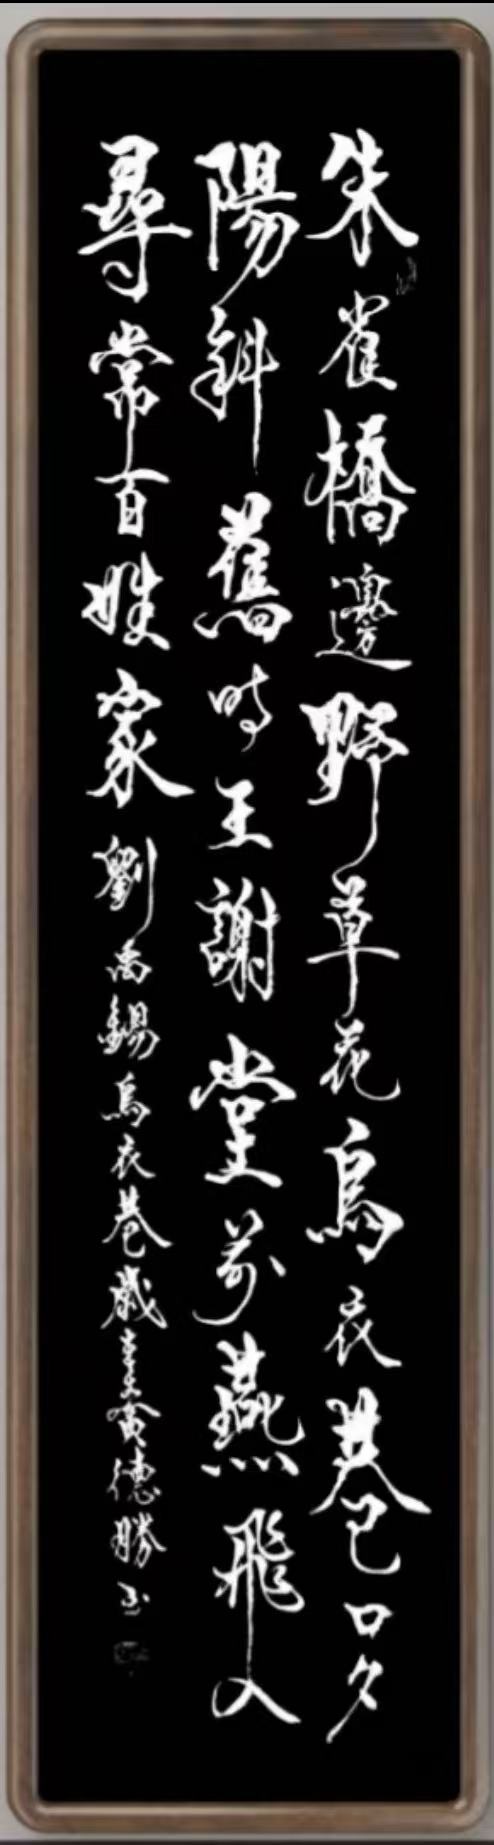 朱雀橋邊野草花烏衣巷口夕
陽斜舊時王謝堂前燕飛入
尋常百姓家劉禹錫烏衣巷歲德勝书